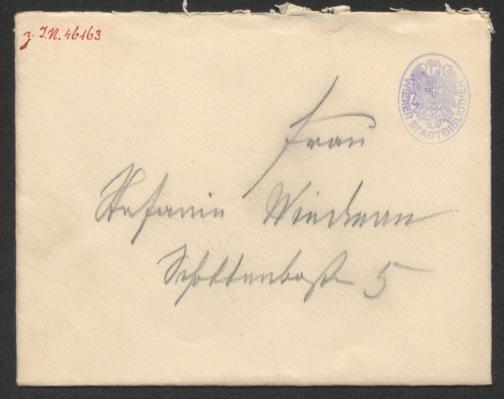 z. I.N. 46163
WIENER STADTBIBLIOTHEK
Frau
Stefanie
Schottenbastei 5